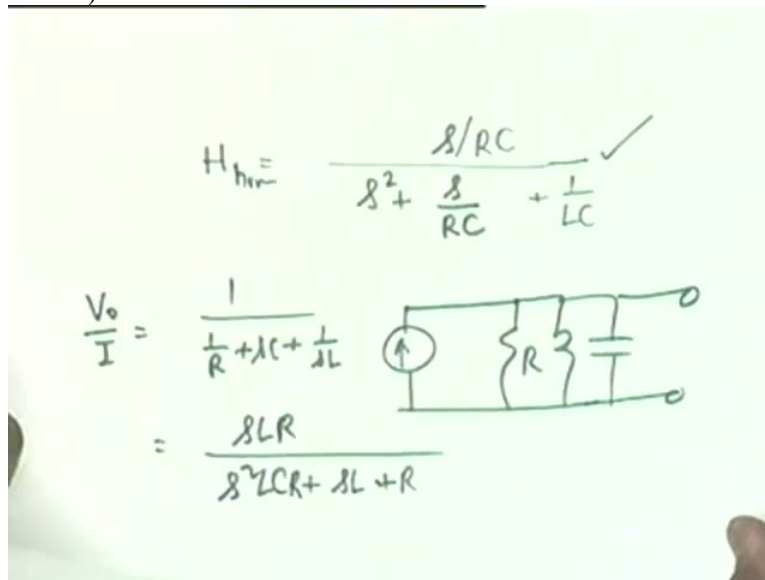 H = s/RC / s² + s/RC + 1/LC ✓
V₀/I = 1 / 1/R + sC + 1/sL
R
= sLR / s²LCR + sL + R